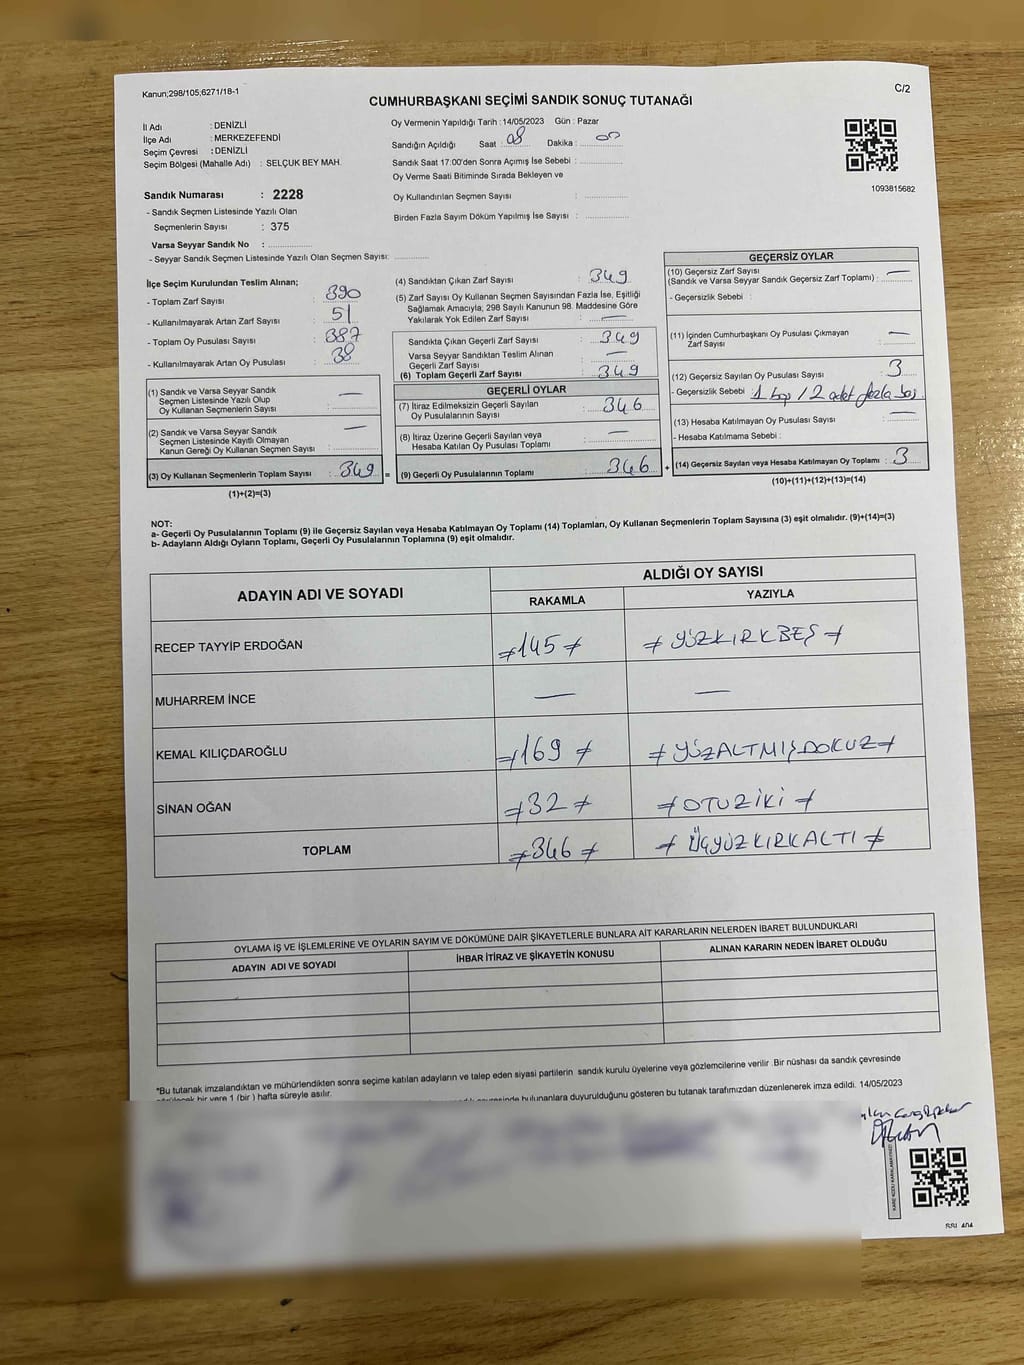 Kanun;298/105;6271/18-1
C/2
CUMHURBAŞKANI SEÇİMİ SANDIK SONUÇ TUTANAĞI
İl Adı : DENİZLİ
İlçe Adı : MERKEZEFENDİ
Seçim Çevresi : DENİZLİ
Seçim Bölgesi (Mahalle Adı) : SELÇUK BEY MAH.
Sandık Numarası : 2228
- Sandık Seçmen Listesinde Yazılı Olan
Seçmenlerin Sayısı : 375
Varsa Seyyar Sandık No :
- Seyyar Sandık Seçmen Listesinde Yazılı Olan Seçmen Sayısı:
Oy Vermenin Yapıldığı Tarih : 14/05/2023 Gün : Pazar
Sandığın Açıldığı Saat : 08 Dakika : 00
Sandık Saat 17:00'den Sonra Açımış İse Sebebi :
Oy Verme Saati Bitiminde Sırada Bekleyen ve
Oy Kullandırılan Seçmen Sayısı :
Birden Fazla Sayım Döküm Yapılmış İse Sayısı :
1093815682
İlçe Seçim Kurulundan Teslim Alınan;
- Toplam Zarf Sayısı : 390
- Kullanılmayarak Artan Zarf Sayısı : 51
- Toplam Oy Pusulası Sayısı : 387
- Kullanılmayarak Artan Oy Pusulası : 38
(1) Sandık ve Varsa Seyyar Sandık
Seçmen Listesinde Yazılı Olup
Oy Kullanan Seçmenlerin Sayısı : —
(2) Sandık ve Varsa Seyyar Sandık
Seçmen Listesinde Kayıtlı Olmayan
Kanun Gereği Oy Kullanan Seçmen Sayısı : —
(3) Oy Kullanan Seçmenlerin Toplam Sayısı : 349 =
(1)+(2)=(3)
(4) Sandıktan Çıkan Zarf Sayısı : 349
(5) Zarf Sayısı Oy Kullanan Seçmen Sayısından Fazla İse, Eşitliği
Sağlamak Amacıyla, 298 Sayılı Kanunun 98. Maddesine Göre
Yakılarak Yok Edilen Zarf Sayısı : —
Sandıkta Çıkan Geçerli Zarf Sayısı : 349
Varsa Seyyar Sandıktan Teslim Alınan
Geçerli Zarf Sayısı : —
(6) Toplam Geçerli Zarf Sayısı : 349
GEÇERLİ OYLAR
(7) İtiraz Edilmeksizin Geçerli Sayılan
Oy Pusulalarının Sayısı : 346
(8) İtiraz Üzerine Geçerli Sayılan veya
Hesaba Katılan Oy Pusulası Toplamı : —
(9) Geçerli Oy Pusulalarının Toplamı : 346 +
GEÇERSİZ OYLAR
(10) Geçersiz Zarf Sayısı
(Sandık ve Varsa Seyyar Sandık Geçersiz Zarf Toplamı) : —
- Geçersizlik Sebebi :
(11) İçinden Cumhurbaşkanı Oy Pusulası Çıkmayan
Zarf Sayısı : —
(12) Geçersiz Sayılan Oy Pusulası Sayısı : 3
- Geçersizlik Sebebi : 1 boş / 2 adet fazla
(13) Hesaba Katılmayan Oy Pusulası Sayısı : —
- Hesaba Katılmama Sebebi :
(14) Geçersiz Sayılan veya Hesaba Katılmayan Oy Toplamı : 3
(10)+(11)+(12)+(13)=(14)
NOT:
a- Geçerli Oy Pusulalarının Toplamı (9) ile Geçersiz Sayılan veya Hesaba Katılmayan Oy Toplamı (14) Toplamları, Oy Kullanan Seçmenlerin Toplam Sayısına (3) eşit olmalıdır. (9)+(14)=(3)
b- Adayların Aldığı Oyların Toplamı, Geçerli Oy Pusulalarının Toplamına (9) eşit olmalıdır.
ADAYIN ADI VE SOYADI ALDIĞI OY SAYISI
RAKAMLA YAZIYLA
RECEP TAYYİP ERDOĞAN ≠145≠ ≠YÜZKIRKBEŞ≠
MUHARREM İNCE — —
KEMAL KILIÇDAROĞLU ≠169≠ ≠YÜZALTMIŞDOKUZ≠
SİNAN OĞAN ≠32≠ ≠OTUZİKİ≠
TOPLAM ≠346≠ ≠ÜÇYÜZKIRKALTI≠
OYLAMA İŞ VE İŞLEMLERİNE VE OYLARIN SAYIM VE DÖKÜMÜNE DAİR ŞİKAYETLERLE BUNLARA AİT KARARLARIN NELERDEN İBARET BULUNDUKLARI
ADAYIN ADI VE SOYADI İHBAR İTİRAZ VE ŞİKAYETİN KONUSU ALINAN KARARIN NEDEN İBARET OLDUĞU
*Bu tutanak imzalandıktan ve mühürlendikten sonra seçime katılan adayların ve talep eden siyasi partilerin sandık kurulu üyelerine veya gözlemcilerine verilir .Bir nüshası da sandık çevresinde
bir yere 1 (bir ) hafta süreyle asılır.
bulunanlara duyurulduğunu gösteren bu tutanak tarafımızdan düzenlenerek imza edildi. 14/05/2023